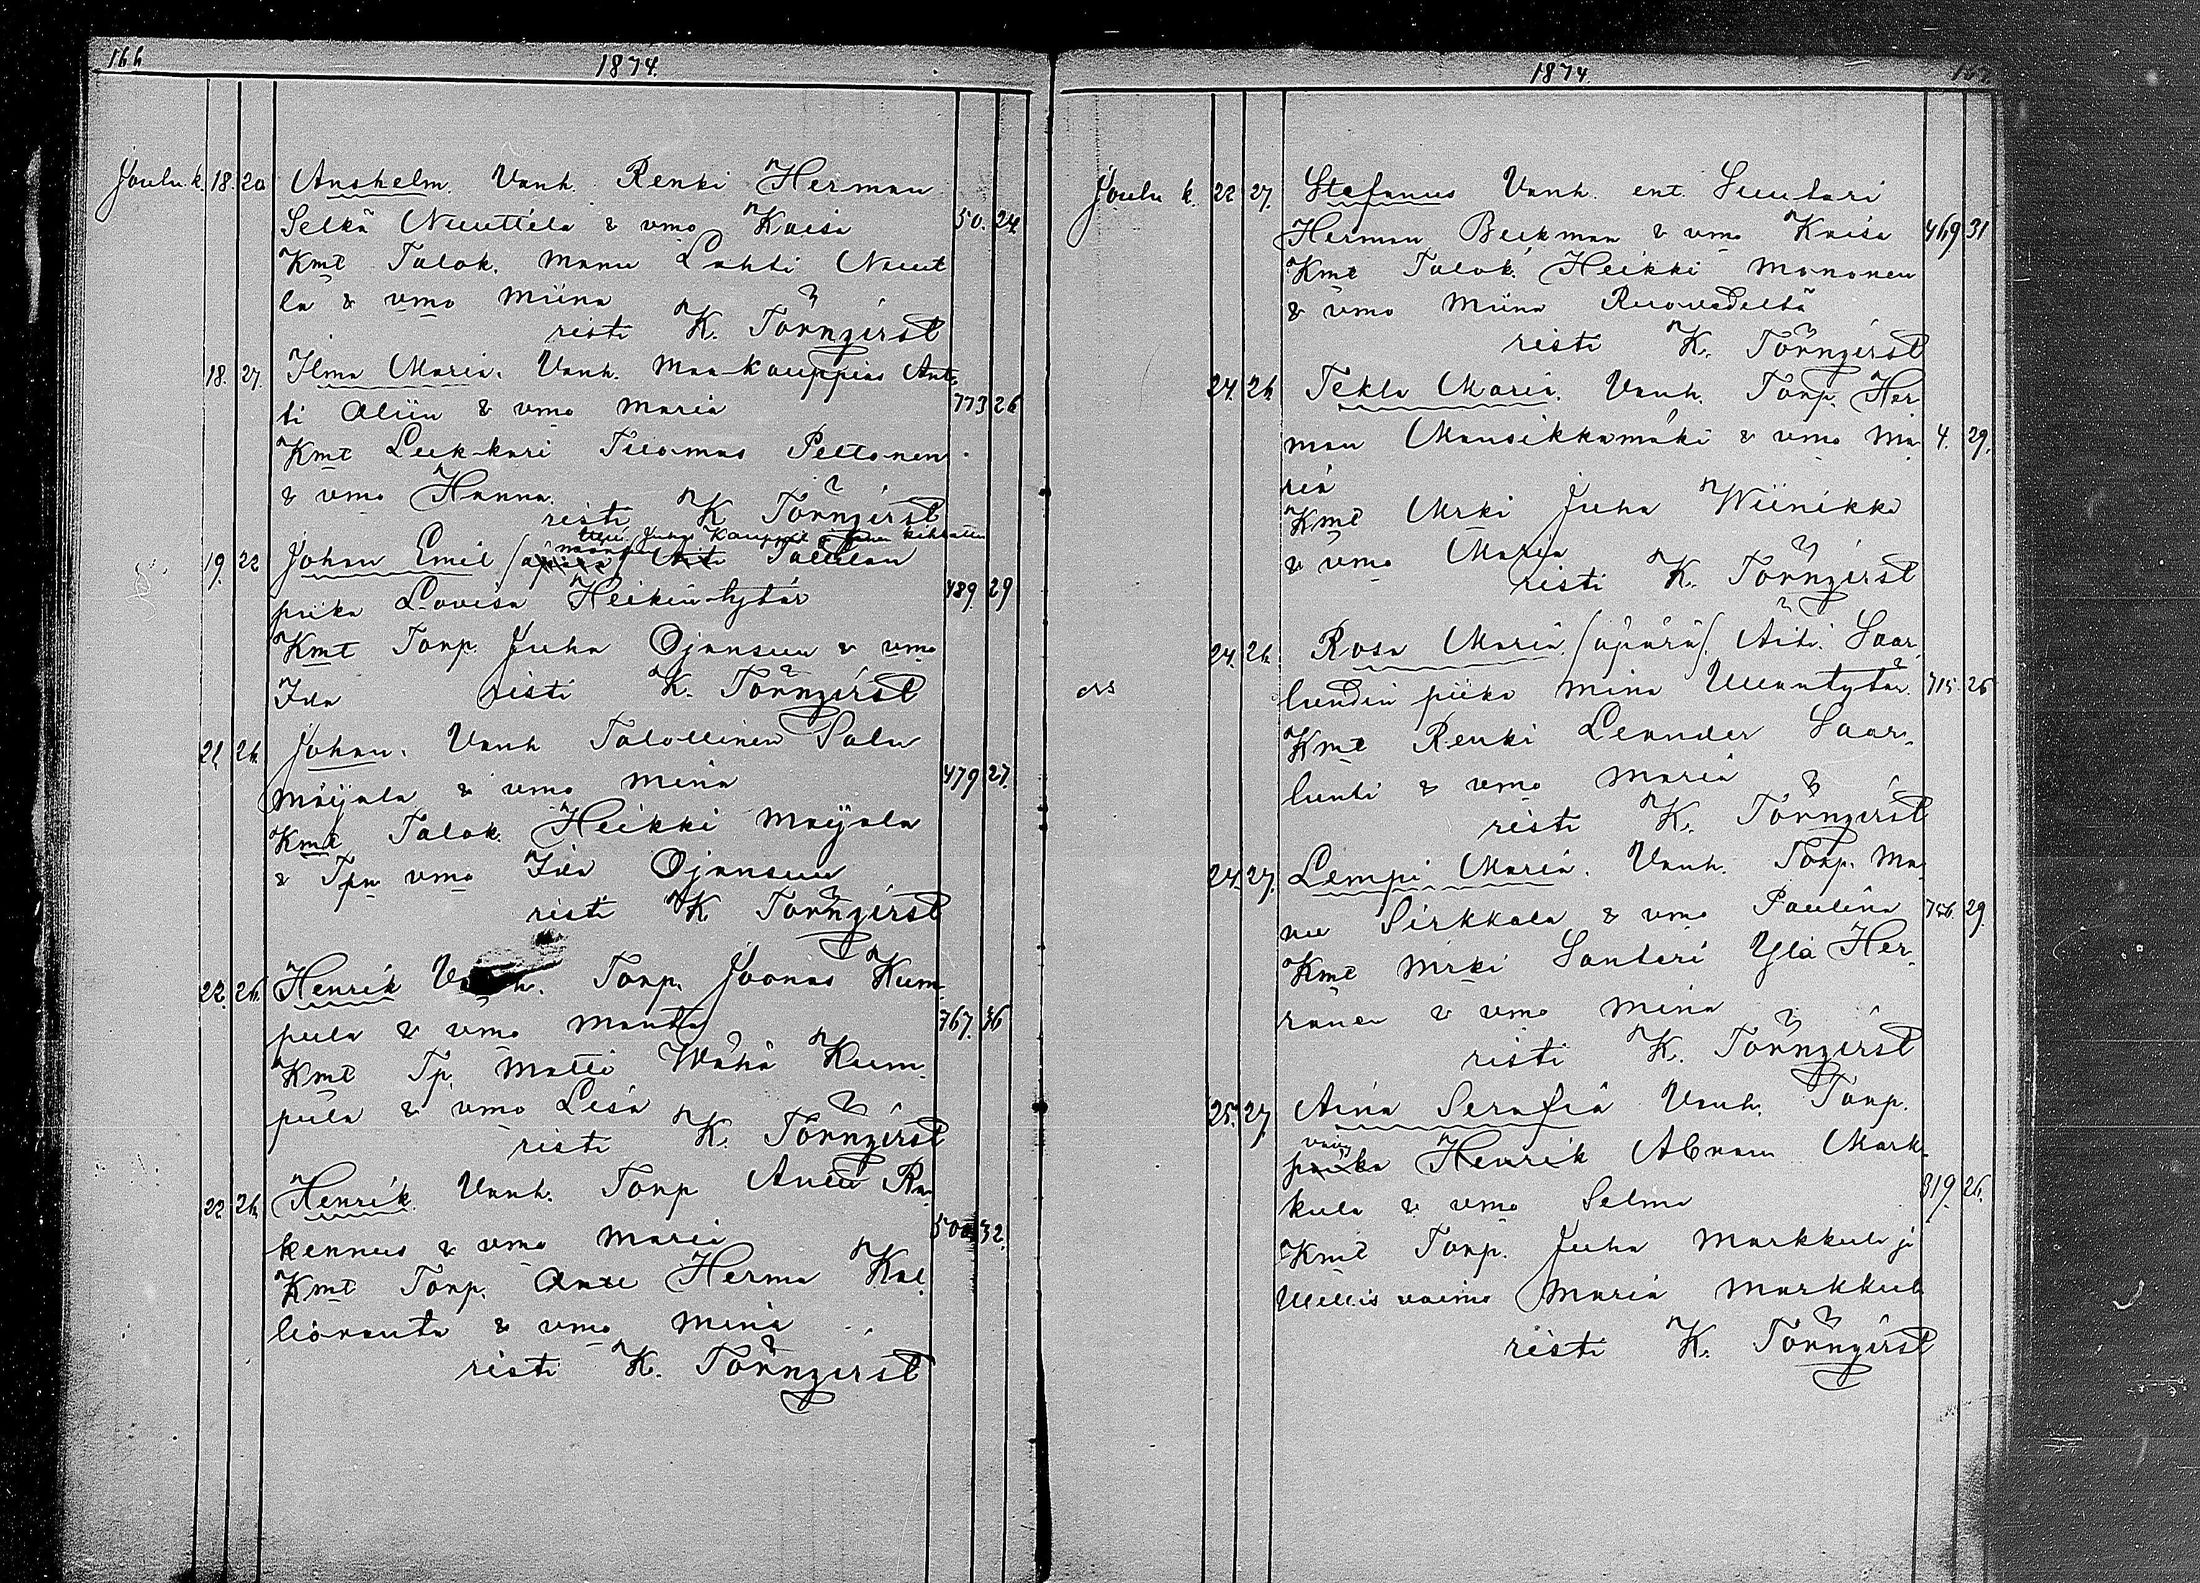 166
1874.
Joulu k. 18. 20 Anshelm. Vanh. Renki Herman
Selkä Nuuttila & vmo Kaisa 50. 24.
Kmt Talok. Manu Lahti Nuut
la & vmo Miina
risti K. Törnqvist
18. 27. Ilma Maria. Vanh. Maakauppias Ant
ti Aliin & vmo Maria 773 26
Kmt Lukkari Tuomas Peltonen
& vmo Hanna.
risti K Törnqvist
19. 22 Johan Emil /äpärä/ Äiti Tallilan
piika Lovisa Heikintytär 489. 29
Kmt Torp. Juha Ojansuu & vmo
Ida risti K. Törnqvist
21. 26. Johan. Vanh Talollinen Salu
Mäijälä & vmo Miina 479 27.
Kmt Talok. Heikki Maijala
& Tpn vmo Ida Ojansuu
risti K Törnqvist
22. 26. Henrik Vanh. Torp. Joonas Kum
pula & vmo Manta 767. 36
Kmt Tp. Matti Wähä Kum
pula & vmo Lisa
risti K. Törnqvist
22 26. Henrik. Vanh. Torp Antti Ra
kennus & vmo Maria 500 32.
Kmt Torp. Herma Kal
liorauta & vmo Mina
risti K. Törnqvist
1874.
Joulu k. 22 27. Stefanus Vanh. ent. Suutari
Herman Beckman & vmo Kaisa 469 31
Kmt Talok. Heikki Mononen
& vmo Miina Ruovedeltä
risti K. Törnqvist
24. 26. Tekla Maria. Vanh. Torp. Her
man Mansikkamäki & vmo Ma 4. 29.
ria
Kmt Mrki Juha Wiinikka
& vmo Maria
risti K. Törnqvist
24. 26. Rosa Maria. /äpärä/. Äiti Saar
lundin piika Mina Umantytär 715. 26
Kmt Renki Leander Saar
lunti & vmo Maria
risti K. Törnqvist
24. 27. Lempi Maria. Vanh. Torp. Ma
nu Sirkkala & vmo Paulina 756. 29.
Kmt Mrki Santeri Ylä Her
ranen & vmo Mina
risti K. Törnqvist
25. 27. Aina Serafia Vanh. Torp.
vävy
poika Henrik Abram Mark
kula & vmo Selma 319. 26.
Kmt Torp. Juha Markkula ja
vaimo Maria Markkula
risti K. Törnqvist